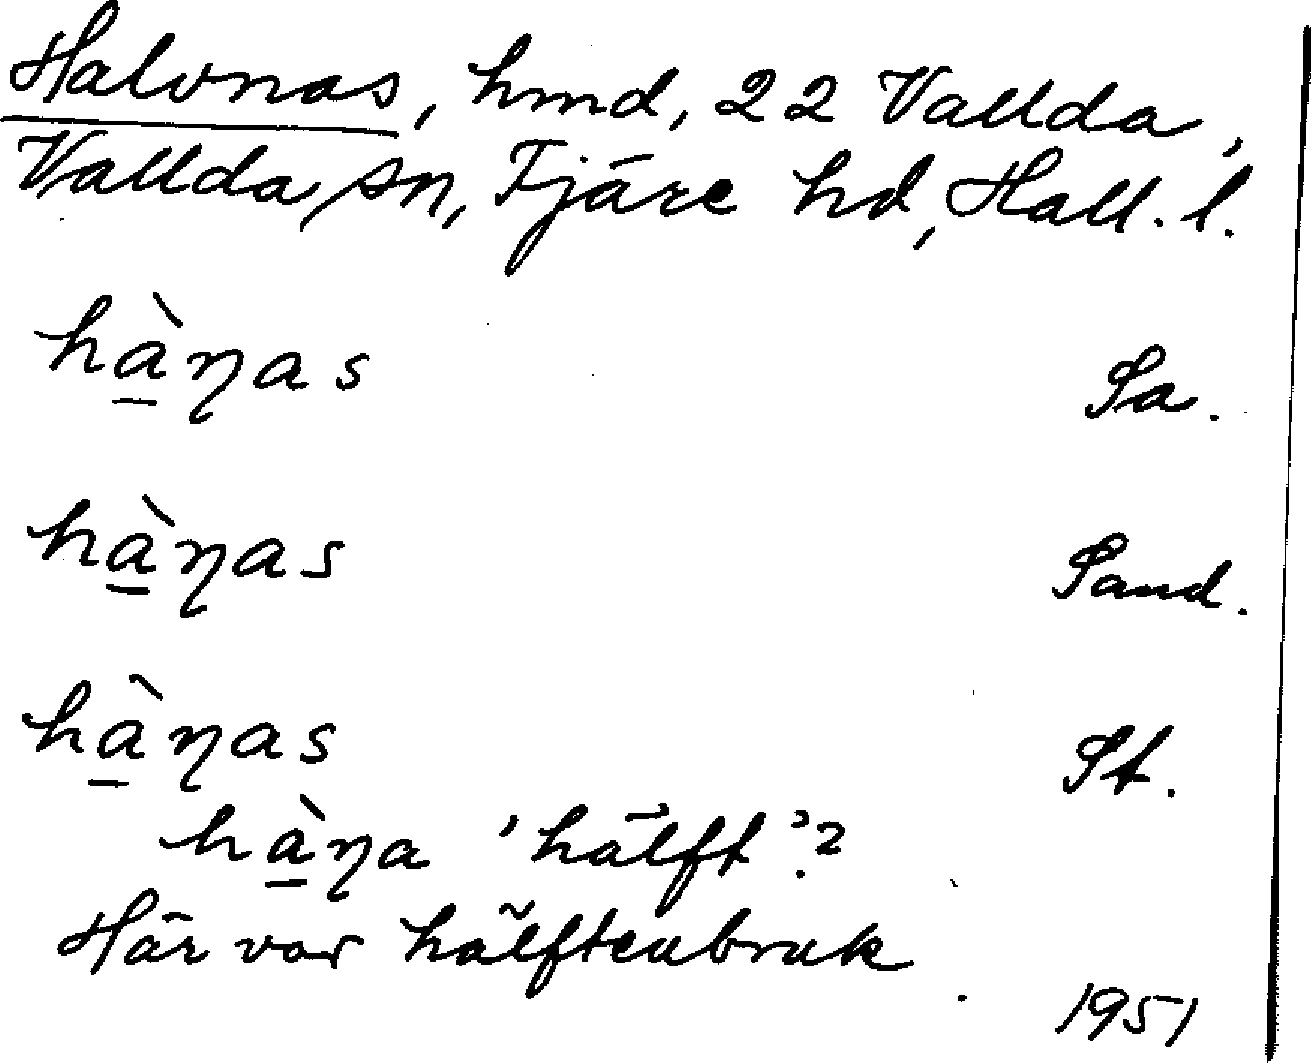 Halvnas, hmd, 22 Vallda,
Vallda sn, Fjäre hd, Hall. l.
hà̱ŋas Sa.
hà̱ŋas Sand.
hà̱ŋas St.
hà̱ŋa 'hälft'. 2
Här var hälftenbruk.
1951